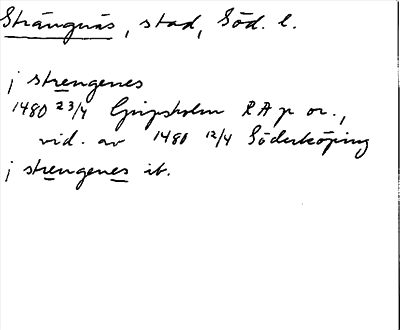 Strängnäs, stad, Söd. l.
j strengenes
1480 23/4 Gripsholm RA p or.,
vid. av 1480 12/4 Söderköping
j strengenes ib.